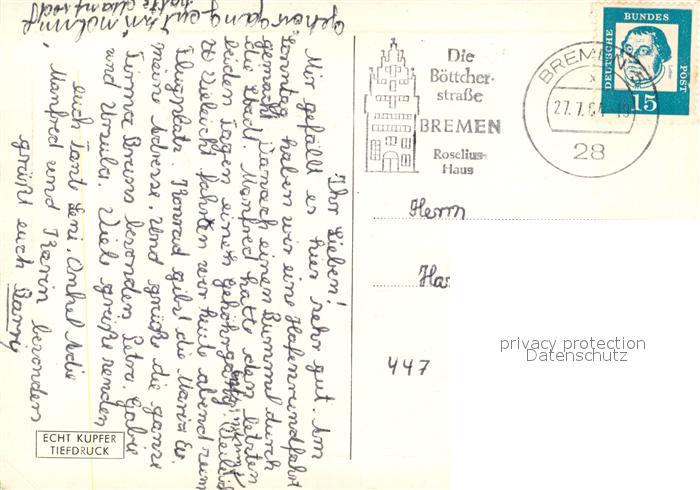 Ihr Lieben!
Mir gefällt es hier sehr gut. Am
Sonntag haben wir eine Hafenrundfahrt
gemacht Danach einen Bummel durch
die Stadt. Manfred hatte den letzten
beiden Tagen einen gehöhrgang
Vieleicht fahrten wir heute abend zum
Flugplatz. Konrad gibt die Maria
meine Adresse. Und grüßt die ganze
Firma Bruns besonders Petra. Gabie
und Ursula. Viele grüße senden
euch Tant Leni, Onkel Adie
, Manfred und Karin besonders
grüßt euch Barny
Gehörgang
Die
Böttcher-
straße
BREMEN
Roselius-
Haus
BREMEN
27.7.64-19
28
DEUTSCHE BUNDES POST
15
Herrn
Ha
447
privacy protection
Datenschutz
ECHT KUPFER
TIEFDRUCK